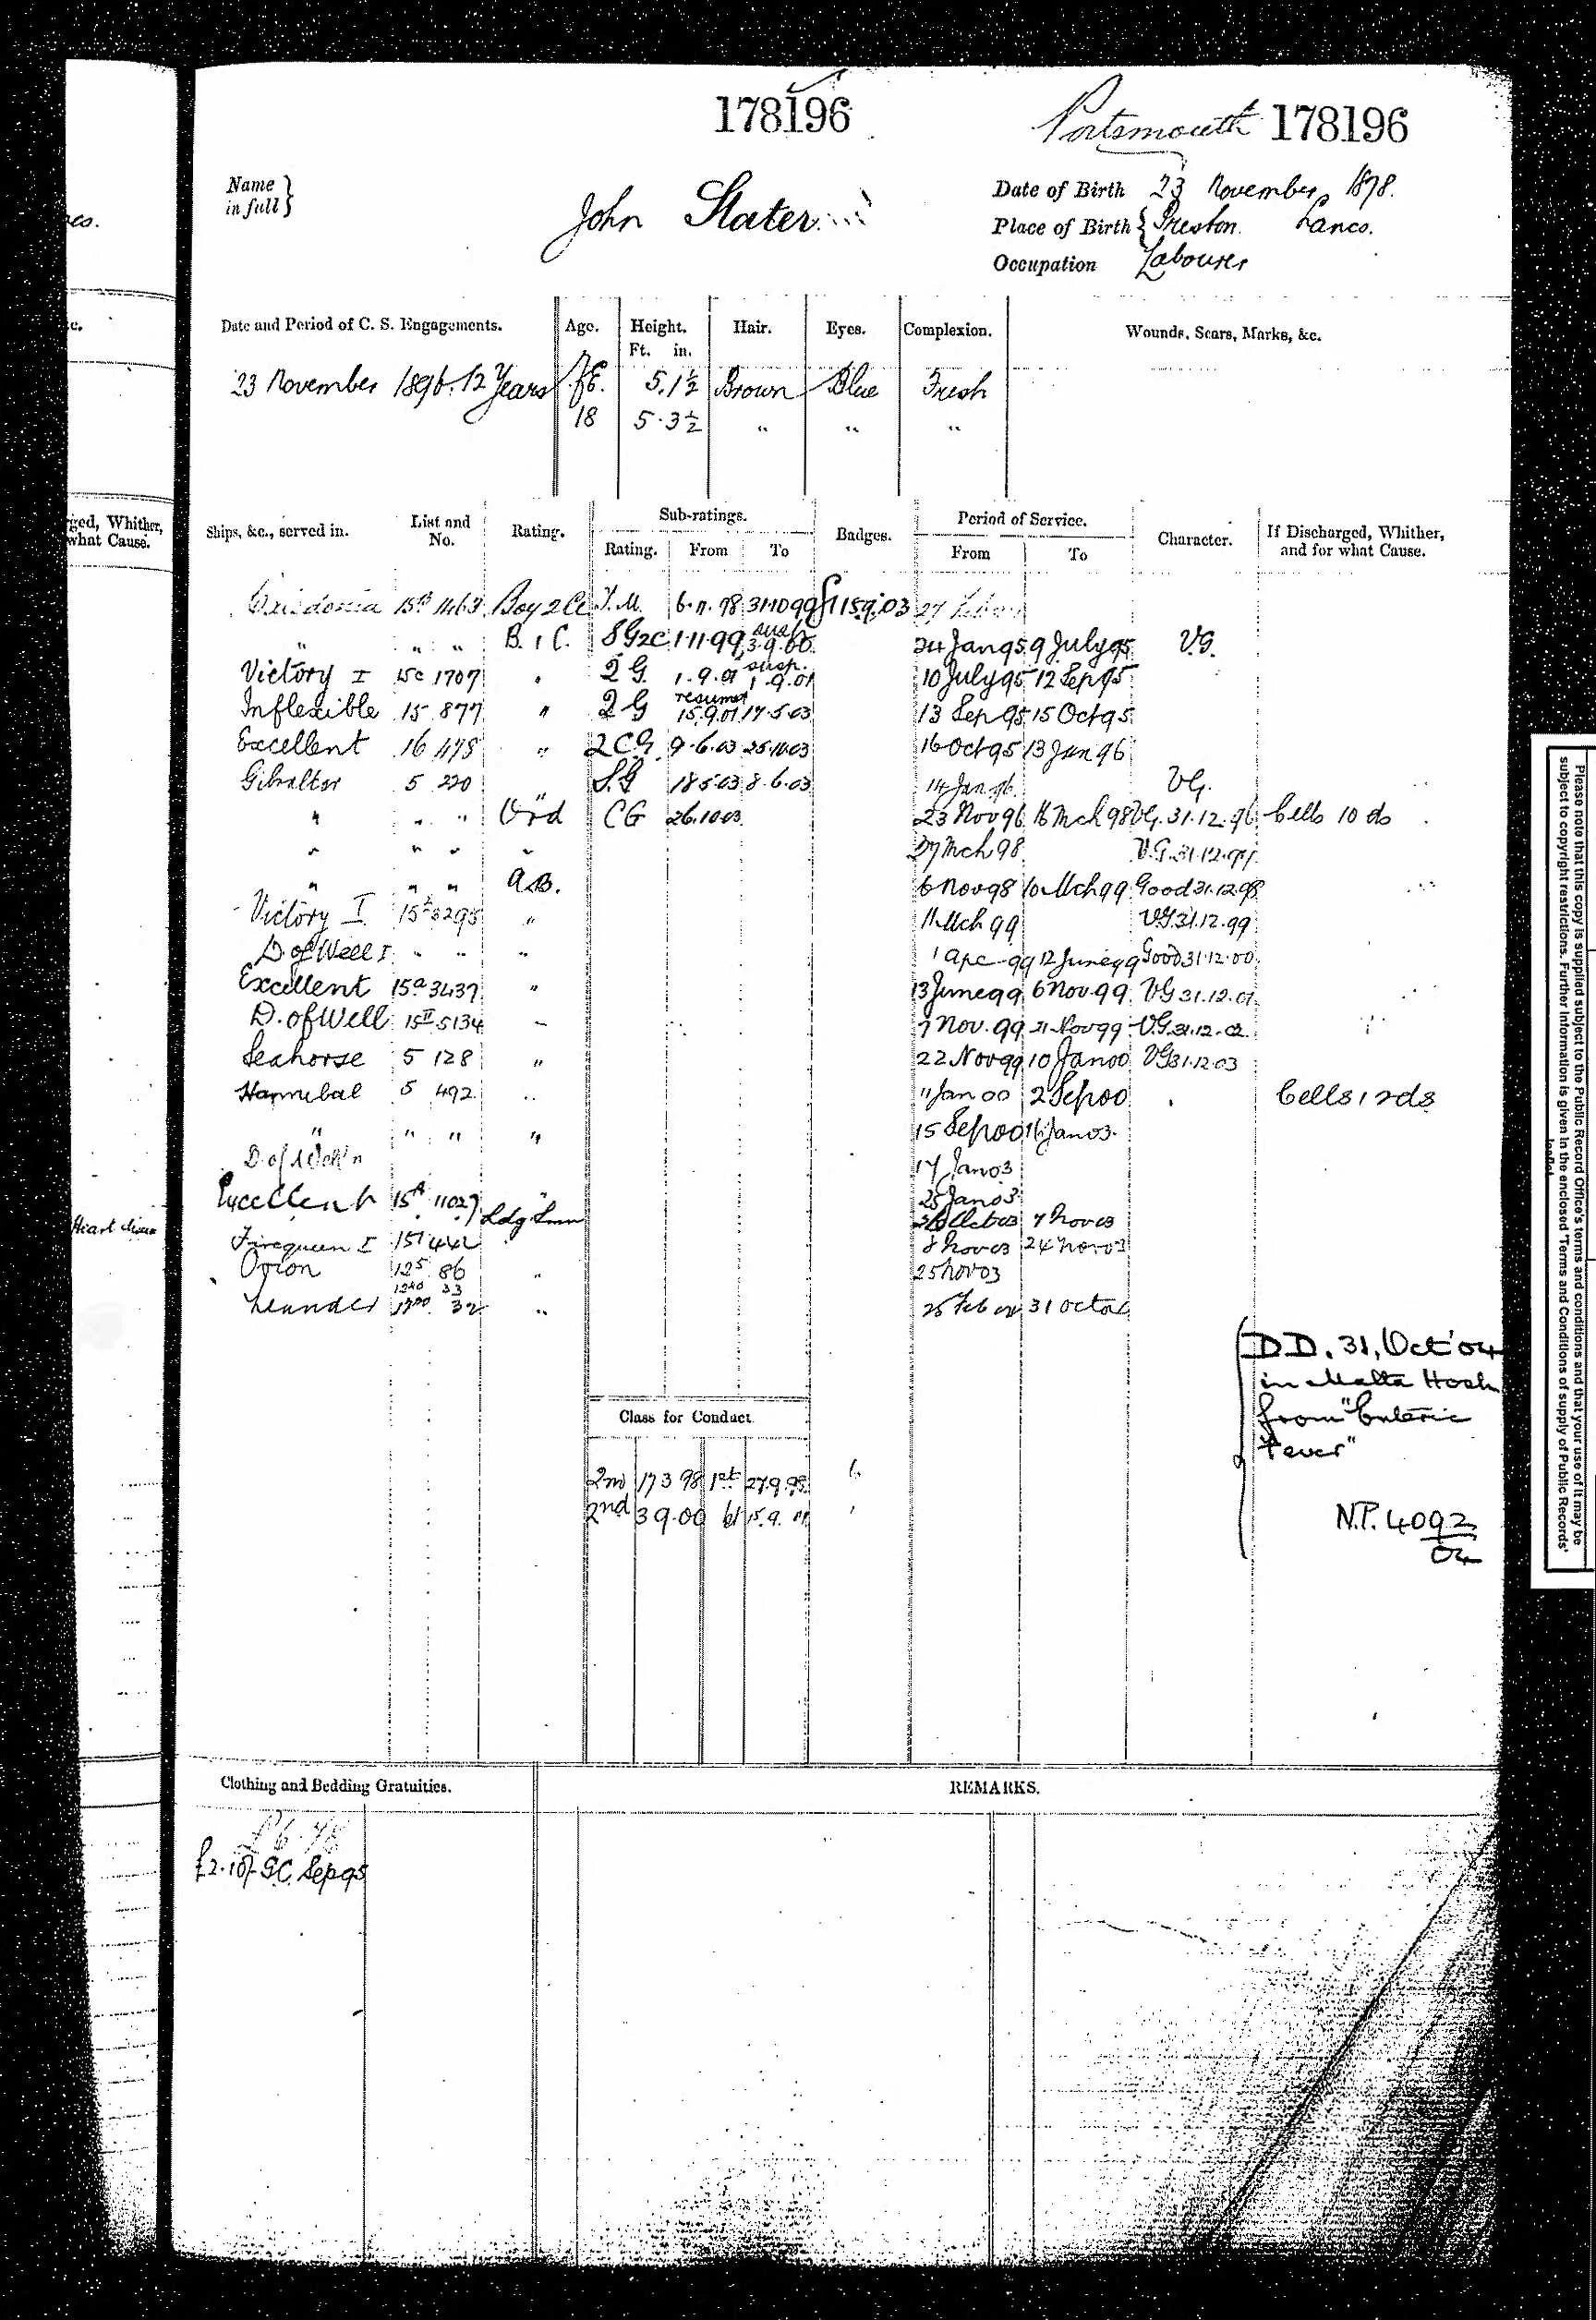 178196
Portsmouth 178196
Name in full } John Slater
Date of Birth 23 November 1878.
Place of Birth { Preston. Lancs.
Occupation Labourer
Date and Period of C. S. Engagements. Age. Height. Ft. in. Hair. Eyes. Complexion. Wounds, Scars, Marks, &c.
23 November 1896. 12 Years 5. 1½ Brown Blue Fresh
18 5. 3½ " " "
Ships, &c., served in. List and No. Rating. Sub-ratings. Rating. From To Badges. Period of Service. From To Character. If Discharged, Whither, and for what Cause.
Boy 2 Cl T.M. 6.11.98 31.10.99 27
" " " B. 1 C. SG2C 1.11.99 3.9.00 24 Jan 95 9 July 95 V.G.
Victory I 15c 1707 " 2 G. 1.9.01 susp. 1.9.01 10 July 95 12 Sep 95
Inflexible 15 877 " 2 G resumed 15.9.01 17.5.03 13 Sep 95 15 Oct 95
Excellent 16 478 " 2 C.G. 9.6.03 25.10.03 16 Oct 95 13 Jan 96
Gibraltar 5 220 " S.G 18.5.03 8.6.03 14 Jan 96 VG.
" " " Ord CG 26.10.03 23 Nov 96 16 Mch 98 VG. 31.12.96 Cells 10 ds
" " " " 27 Mch 98 V.G. 31.12.97
" " " A.B. 6 Nov 98 10 Mch 99 Good 31.12.98
Victory I 15 3295 " 11 Mch 99 VG 31.12.99
D of Well I " " " 1 Apl 99 12 June 99 Good 31.12.00
Excellent 15a 3437 " 13 June 99 6 Nov. 99 VG 31.12.01
D. of Well 15II 5134 " 7 Nov. 99 21 Nov 99 V.G. 31.12.02
Seahorse 5 128 " 22 Nov 99 10 Jan 00 VG 31.12.03
Hannibal 5 492 " 11 Jan 00 2 Sep 00 Cells 12 ds
" " " " 15 Sep 00 16 Jan 03.
D. of Well'n 17 Jan 03
Excellent 15A 1102 " 25 Jan 03
Ldg Smn 7 Nov 03
Firequeen I 442 8 Nov 03 24 Nov 03
Orion 125 86 " 25 Nov 03
Leander 32 " 31 Oct 04
D.D. 31, Oct '04
in Malta Hosp.
from "Enteric
Fever"
N.P. 4092/04
Class for Conduct.
2nd 17 3 98 1st 27.9.98
2nd 3 9.00 15.9.01
Clothing and Bedding Gratuities. REMARKS.
£2.10/- G.C. Sep 95
rged, Whither,
what Cause.
Heart disease
Please note that this copy is supplied subject to the Public Record Office's terms and conditions and that your use of it may be
subject to copyright restrictions. Further information is given in the enclosed 'Terms and Conditions of supply of Public Records'
leaflet